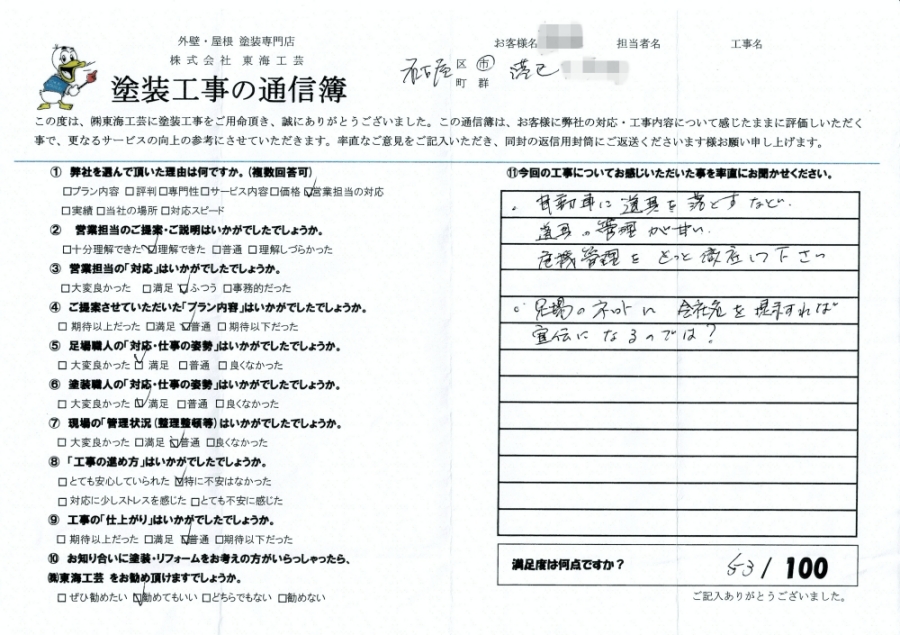 外壁・屋根 塗装専門店
株式会社 東海工芸
塗装工事の通信簿
お客様名 担当者名 工事名
名古屋 区 市 港区
町 群
この度は、㈱東海工芸に塗装工事をご用命頂き、誠にありがとうございました。この通信簿は、お客様に弊社の対応・工事内容について感じたままに評価しいただく
事で、更なるサービスの向上の参考にさせていただきます。率直なご意見をご記入いただき、同封の返信用封筒にご返送くださいます様お願い申し上げます。
① 弊社を選んで頂いた理由は何ですか。(複数回答可)
□プラン内容 □評判 □専門性 □サービス内容 □価格 ☑営業担当の対応
□実績 □当社の場所 □対応スピード
② 営業担当のご提案・ご説明はいかがでしたでしょうか。
□十分理解できた ☑理解できた □普通 □理解しづらかった
③ 営業担当の「対応」はいかがでしたでしょうか。
□大変良かった □満足 ☑ふつう □事務的だった
④ ご提案させていただいた「プラン内容」はいかがでしたでしょうか。
□期待以上だった □満足 ☑普通 □期待以下だった
⑤ 足場職人の「対応・仕事の姿勢」はいかがでしたでしょうか。
□大変良かった ☑満足 □普通 □良くなかった
⑥ 塗装職人の「対応・仕事の姿勢」はいかがでしたでしょうか。
□大変良かった ☑満足 □普通 □良くなかった
⑦ 現場の「管理状況(整理整頓等)はいかがでしたでしょうか。
□大変良かった □満足 ☑普通 □良くなかった
⑧ 「工事の進め方」はいかがでしたでしょうか。
□とても安心していられた ☑特に不安はなかった
□対応に少しストレスを感じた □とても不安に感じた
⑨ 工事の「仕上がり」はいかがでしたでしょうか。
□期待以上だった □満足 ☑普通 □期待以下だった
⑩ お知り合いに塗装・リフォームをお考えの方がいらっしゃったら、
㈱東海工芸 をお勧め頂けますでしょうか。
□ぜひ勧めたい ☑勧めてもいい □どちらでもない □勧めない
⑪今回の工事についてお感じいただいた事を率直にお聞かせください。
・自動車に道具を落とすなど、
道具の管理が甘い。
危機管理をもっと徹底して下さい
・足場のネットに会社名を掲示すれば
宣伝になるのでは?
満足度は何点ですか? 53/100
ご記入ありがとうございました。